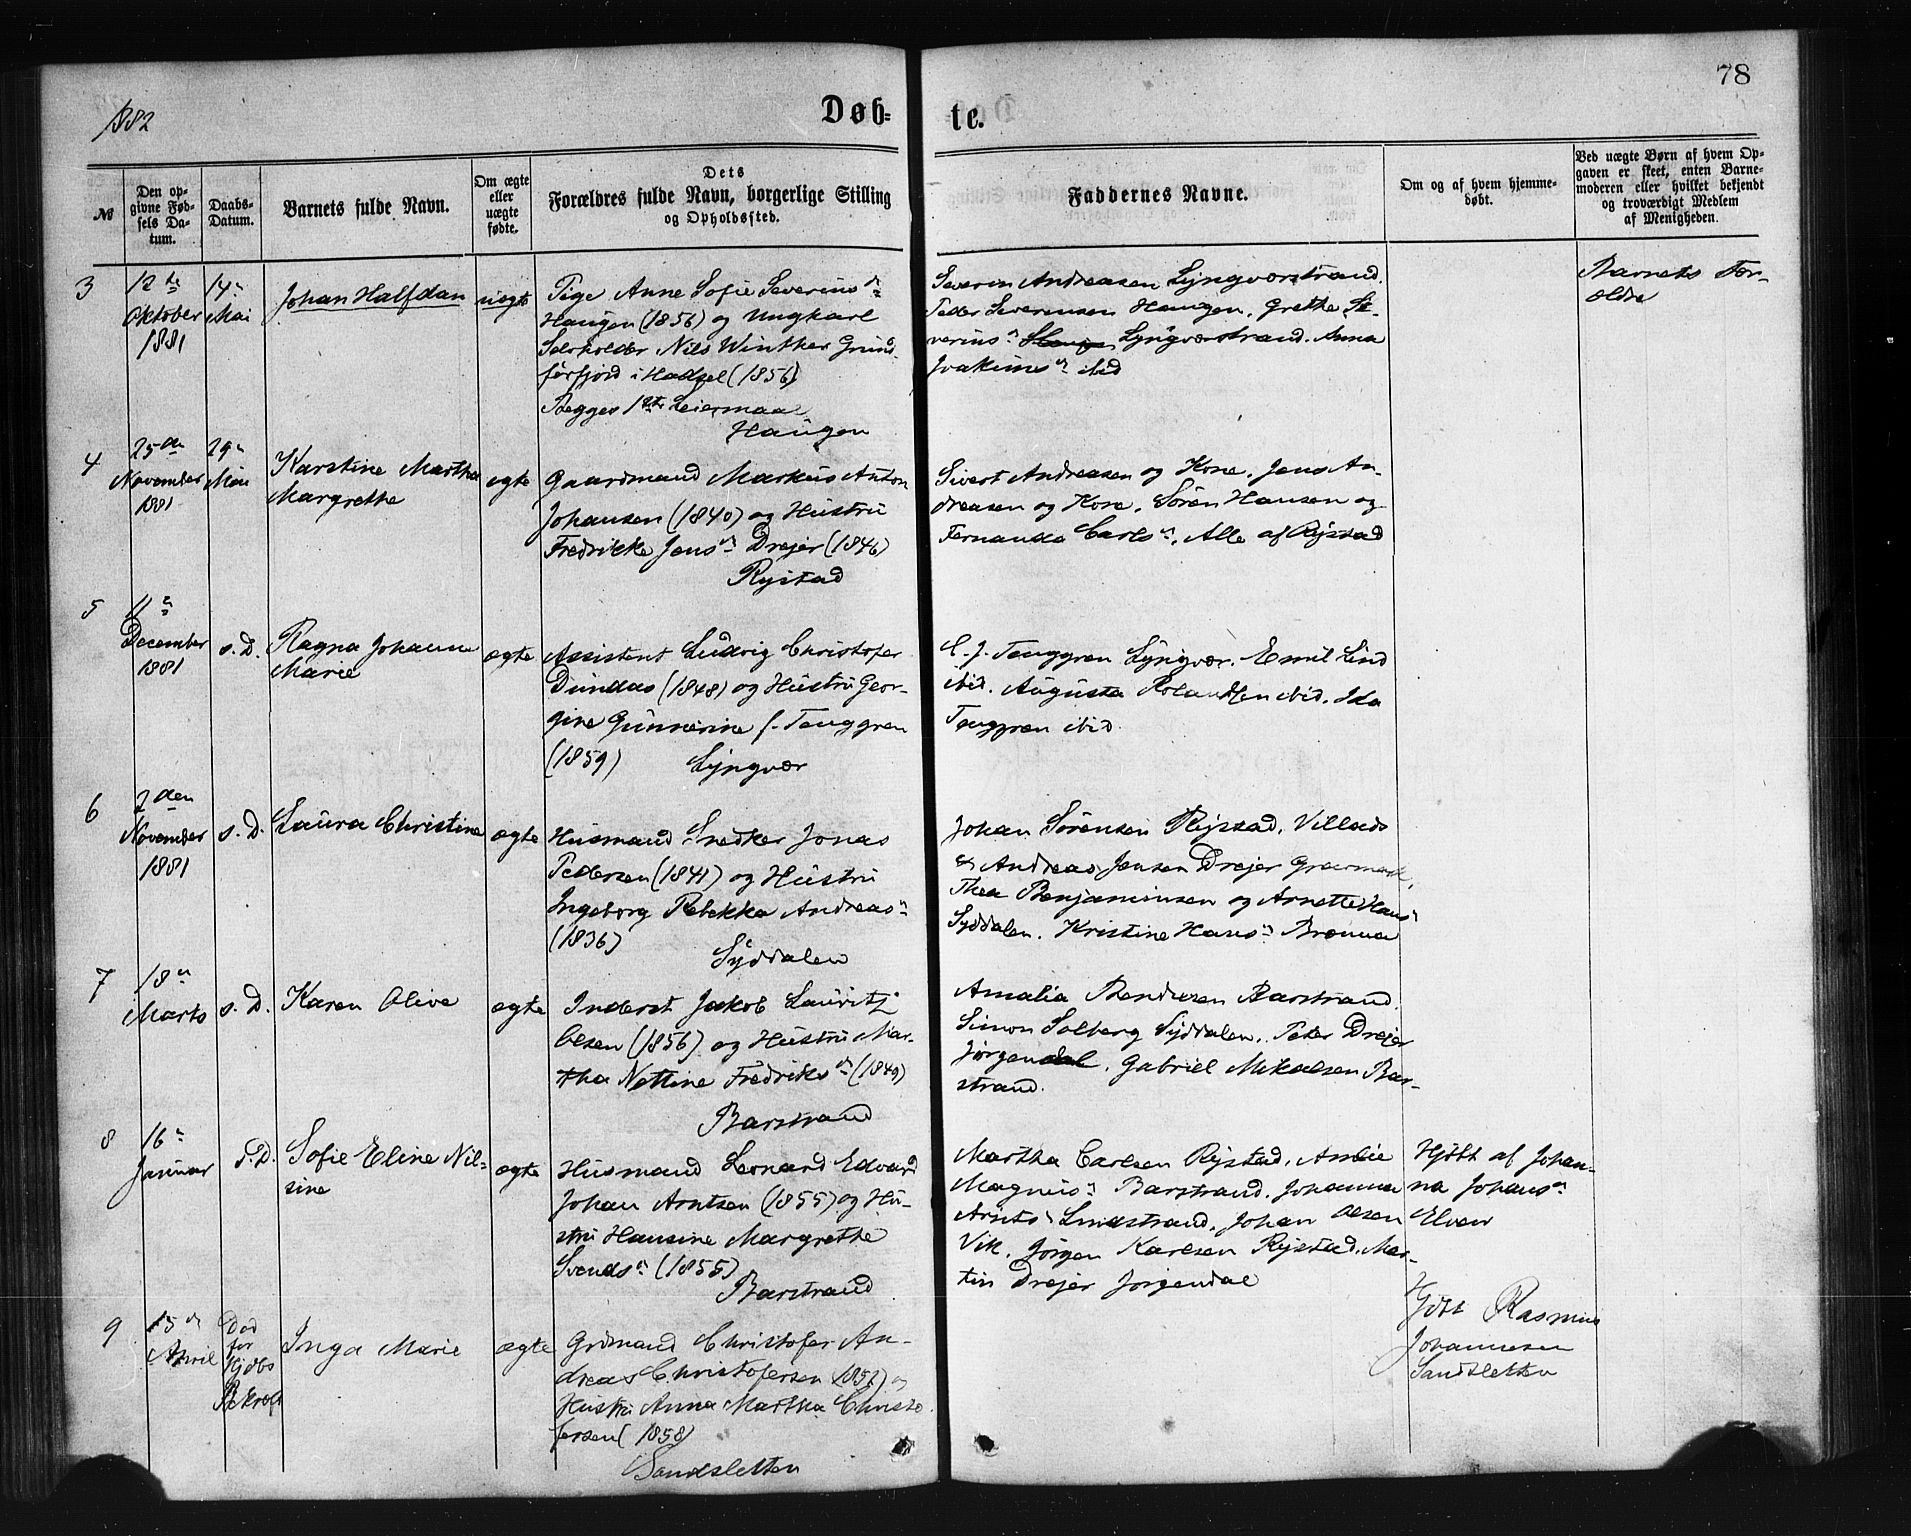 1882
Døb=
te.
78
№
Den op=
givne Fød=
sels Da=
tum.
Daabs=
Datum.
Barnets fulde Navn.
Om ægte
eller
uægte
fødte.
Dets
Forældres fulde Navn, borgerlige Stilling
og Opholdssted.
Faddernes Navne.
Om og af hvem hjemme=
døbt.
Ved uægte Børn af hvem Op=
gaven er skeet, enten Barne=
moderen eller hvilket bekjendt
og troværdigt Medlem
af Menigheden.
3
12te
Oktober
1881
14n
Mai
Johan Halfdan
uægte
Pige Anne Sofie Severinsdn
Haugen (1856) og Ungkarl
Selvholder Nils Winther Grúns
førfjord i Hadsel (1856)
Begges 1ste Leiermaal
Haugen
Severin Andreasen Lyngværstrand.
Peder Severinsen Haugen, Grethe Se-
verinsn Lyngværstrand. Anna
Joakimsn ibid
Barnets For-
ældre
4
25de
November
1881
29n
Mai
Karstine Martha
Margrethe
ægte
Gaardmand Markus Anton
Johansen (1840) og Hústrú
Fredrikke Jensdn Drejer (1846)
Rystad
Sivert Andreasen og Kone, Jens An-
dreasen og Kone, Søren Hansen og
Fernanda Carlsn, Alle af Rystad
5
11n
December
1881
s. D.
Ragna Johanne
Marie
ægte
Assistent Ludvig Christofer
Dundas (1848) og Hústrú Geor-
gine Gúnnerine f. Tenggren
(1859) Lyngvær
C. J. Tenggren Lyngvær. Emil Lind
ibid. Augusta Rolandsen ibid. Ida
Tenggren ibid.
6
2den
November
1881
s. D.
Laura Christine
ægte
Húsmand Snedker Jonas
Pedersen (1841) og Hústrú
Ingeborg Rebekka Andreasdn
(1836)
Syddalen
Johan Sørensen Rystad, Villads
& Andreas Jensen Drejer
Thea Benjaminsen og Arnette Hans
Syddalen. Kristine Hansn Brenna
7
18n
Marts
s. D.
Karen Olive
ægte
Inderst Jakob Lauritz
Olsen (1856) og Hústrú Mar-
tha Nettine Fredriksdn (1849)
Barstrand
Amalia Bendixen Barstrand.
Simon Solberg Syddalen, Peter Drejer
Jørgendal, Gabriel Mikalsen Bar-
strand.
8
16n
Januar
s. D.
Sofie Eline Nil=
sine
ægte
Húsmand Leonard Edvard
Johan Arntsen (1855) og Hú-
strú Hansine Margrethe
Svendsdn (1855)
Barstrand
Martha Carlsen Rystad, Amlie
Magnusn Barstrand. Johanna
Arnts Lindstrand, Johan Olsen
Vik, Jørgen Karlsen Rystad, Mar-
tin Drejer Jørgendal
Hjdbt af Johan-
na Johansn
Elven
9
15de
April
Død
før
Hjdbs
Bekræft
Inga Marie
ægte
Grdmand Christofer An-
dreas Christofersen (1852) og
Hustrú Anna Martha Christo
fersen (1858)
Sandsletten
Hjdbt Rasmus
Johannesen
Sandsletten